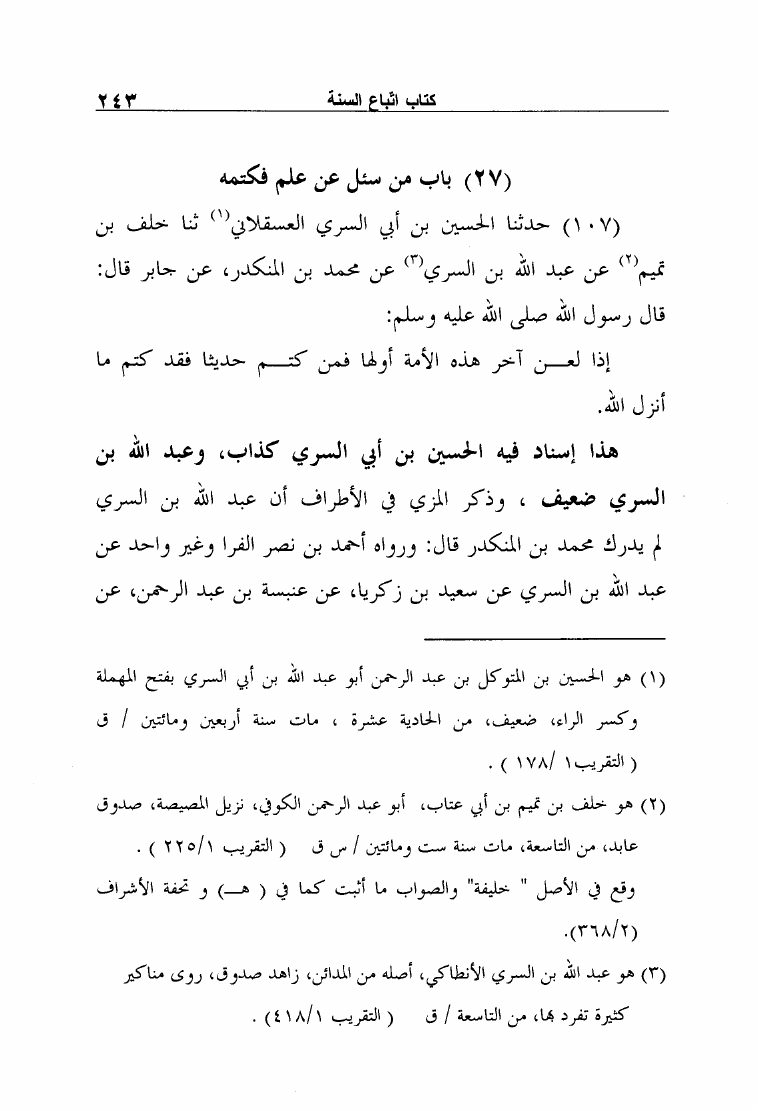 كتاب اتّباع السنة ٢٤٣
(٢٧) باب من سئل عن علم فكتمه
(١٠٧) حدثنا الحسين بن أبي السري العسقلاني(١) ثنا خلف بن
تميم(٢) عن عبد الله بن السري(٣) عن محمد بن المنكدر، عن جابر قال:
قال رسول الله صلى الله عليه وسلم:
إذا لعـــن آخر هذه الأمة أولها فمن كتـــم حديثا فقد كتم ما
أنزل الله.
هذا إسناد فيه الحسين بن أبي السري كذاب، وعبد الله بن
السري ضعيف ، وذكر المزي في الأطراف أن عبد الله بن السري
لم يدرك محمد بن المنكدر قال: ورواه أحمد بن نصر الفرا وغير واحد عن
عبد الله بن السري عن سعيد بن زكريا، عن عنبسة بن عبد الرحمن، عن
(١) هو الحسين بن المتوكل بن عبد الرحمن أبو عبد الله بن أبي السري بفتح المهملة
وكسر الراء، ضعيف، من الحادية عشرة ، مات سنة أربعين ومائتين / ق
( التقريب١ /١٧٨ ) .
(٢) هو خلف بن تميم بن أبي عتاب، أبو عبد الرحمن الكوفي، نزيل المصيصة، صدوق
عابد، من التاسعة، مات سنة ست ومائتين / س ق ( التقريب ٢٢٥/١ ) .
وقع في الأصل " خليفة" والصواب ما أثبت كما في ( هـــ) و تحفة الأشراف
(٣٦٨/٢).
(٣) هو عبد الله بن السري الأنطاكي، أصله من المدائن، زاهد صدوق، روى مناكير
كثيرة تفرد بها، من التاسعة / ق ( التقريب ٤١٨/١) .